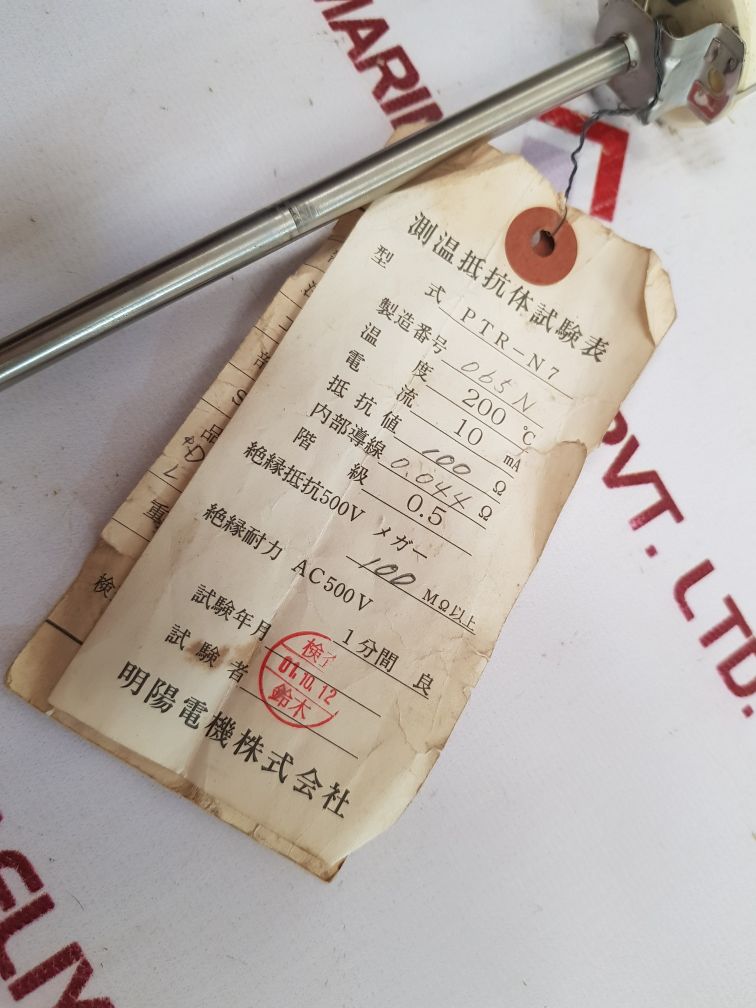 MARIN
測温抵抗体試験表
型式 PTR-N7
製造番号 065N
温度 200 ℃
電流 10 mA
抵抗値 100 Ω
内部導線 0.044 Ω
階級 0.5
絶縁抵抗500V メガー 100 MΩ以上
絶縁耐力 AC500V 1分間 良
試験年月
試験者
検
01.10.12
鈴木
明陽電機株式会社
S
品
重
検
PVT. LTD.
ELIV